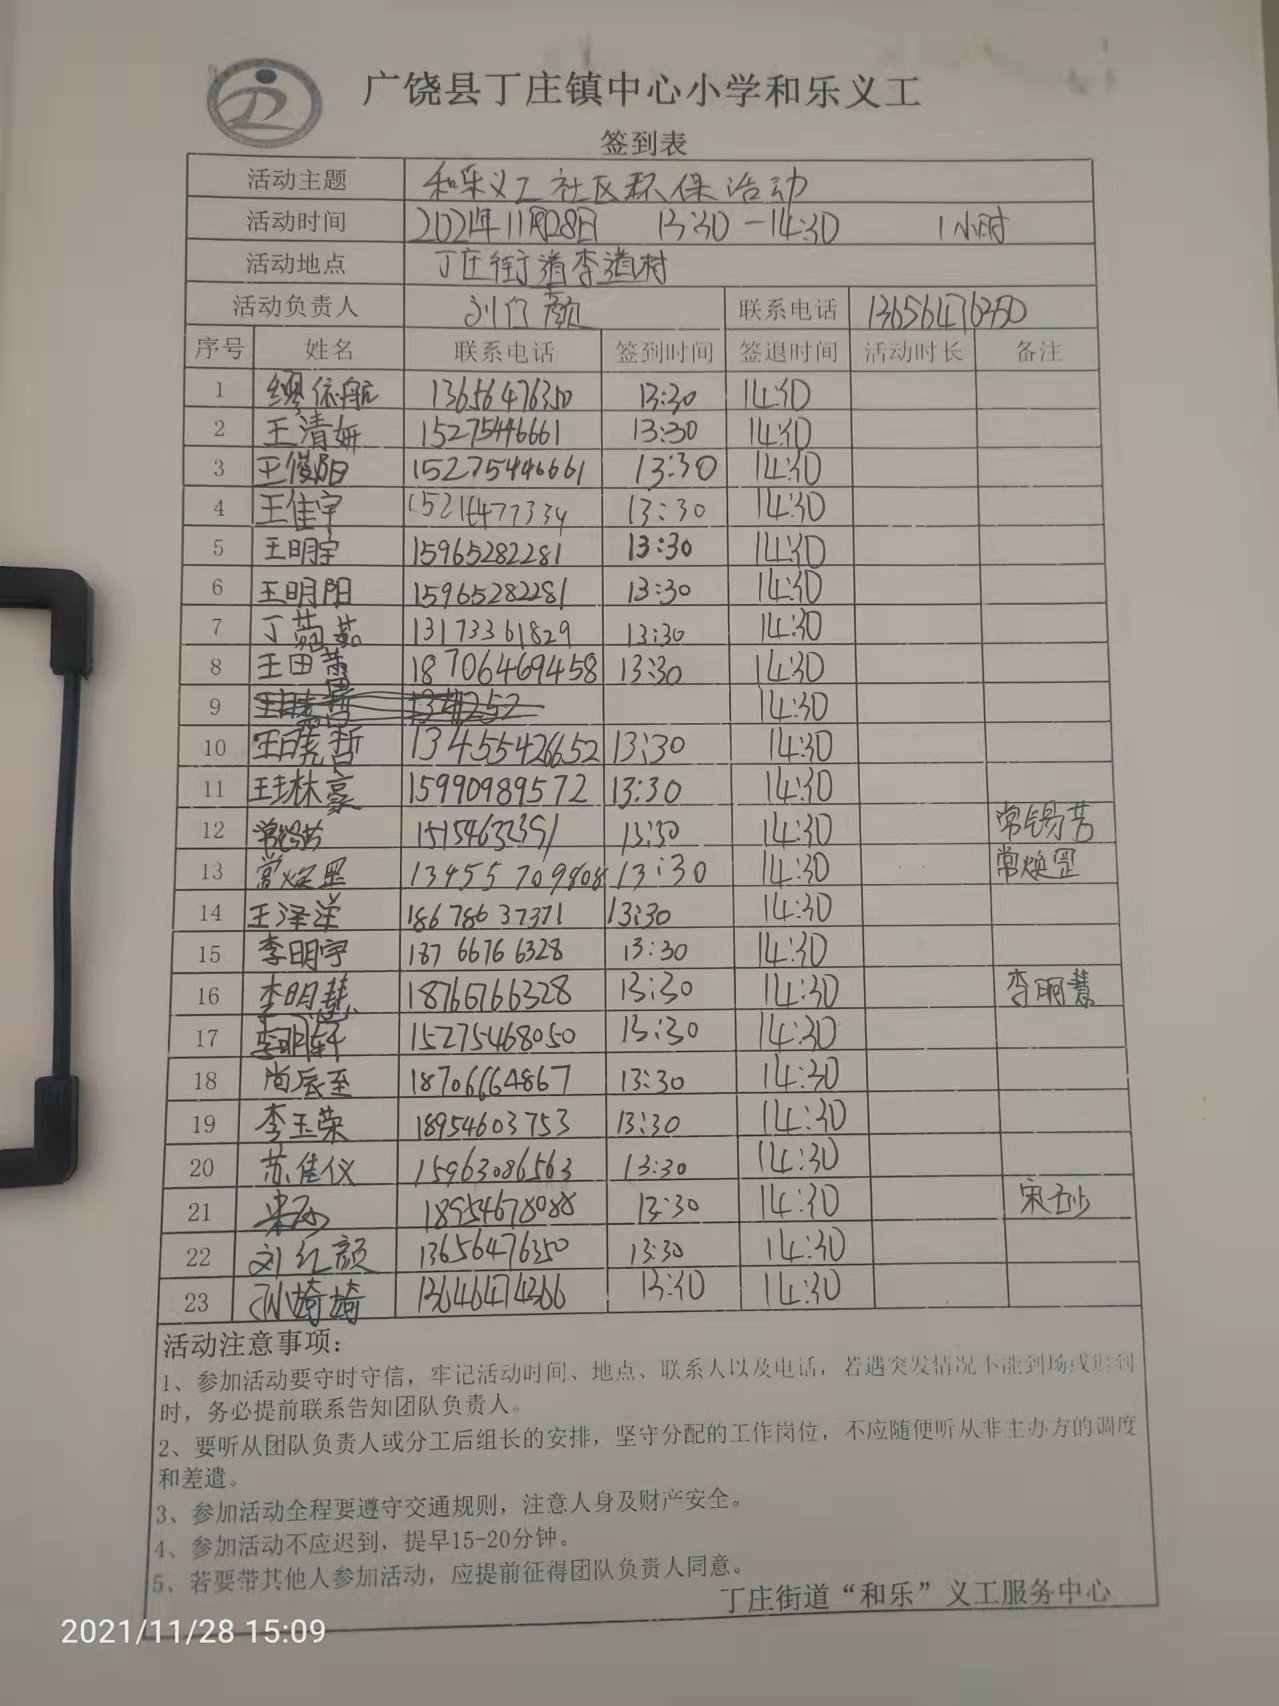 广饶县丁庄镇中心小学和乐义工
签到表
活动主题 和乐义工社区环保活动
活动时间 2021年11月28日 13:30-14:30 1小时
活动地点 丁庄街道李道村
活动负责人 刘红颜 联系电话 13656476350
序号 姓名 联系电话 签到时间 签退时间 活动时长 备注
1 缪依航 13656476350 13:30 14:30
2 王清妍 15275446661 13:30 14:30
3 王俊阳 15275446661 13:30 14:30
4 王佳宇 13:30 14:30
5 王明宇 15965282281 13:30 14:30
6 王明阳 15965282281 13:30 14:30
7 丁 茹 13173361829 13:30 14:30
8 王田 18706469458 13:30 14:30
9 14:30
10 13455426652 13:30 14:30
11 林豪 15990989572 13:30 14:30
12 常锡芳 15154632391 13:30 14:30 常锡芳
13 常焕罡 13455709808 13:30 14:30 常焕罡
14 王泽洋 18678637371 13:30 14:30
15 李明宇 18766766328 13:30 14:30
16 李明慧 18766766328 13:30 14:30 李明慧
17 李明轩 15275468050 13:30 14:30
18 尚辰至 18706664867 13:30 14:30
19 李玉荣 18954603753 13:30 14:30
20 苏佳仪 15963086563 13:30 14:30
21 18954678088 13:30 14:30 宋
22 刘红颜 13656476350 13:30 14:30
23 孙婍婍 13646474366 13:30 14:30
活动注意事项：
1、参加活动要守时守信，牢记活动时间、地点、联系人以及电话，若遇突发情况不能到场或迟到
时，务必提前联系告知团队负责人。
2、要听从团队负责人或分工后组长的安排，坚守分配的工作岗位，不应随便听从非主办方的调度
和差遣。
3、参加活动全程要遵守交通规则，注意人身及财产安全。
4、参加活动不应迟到，提早15-20分钟。
5、若要带其他人参加活动，应提前征得团队负责人同意。
丁庄街道“和乐”义工服务中心
2021/11/28 15:09